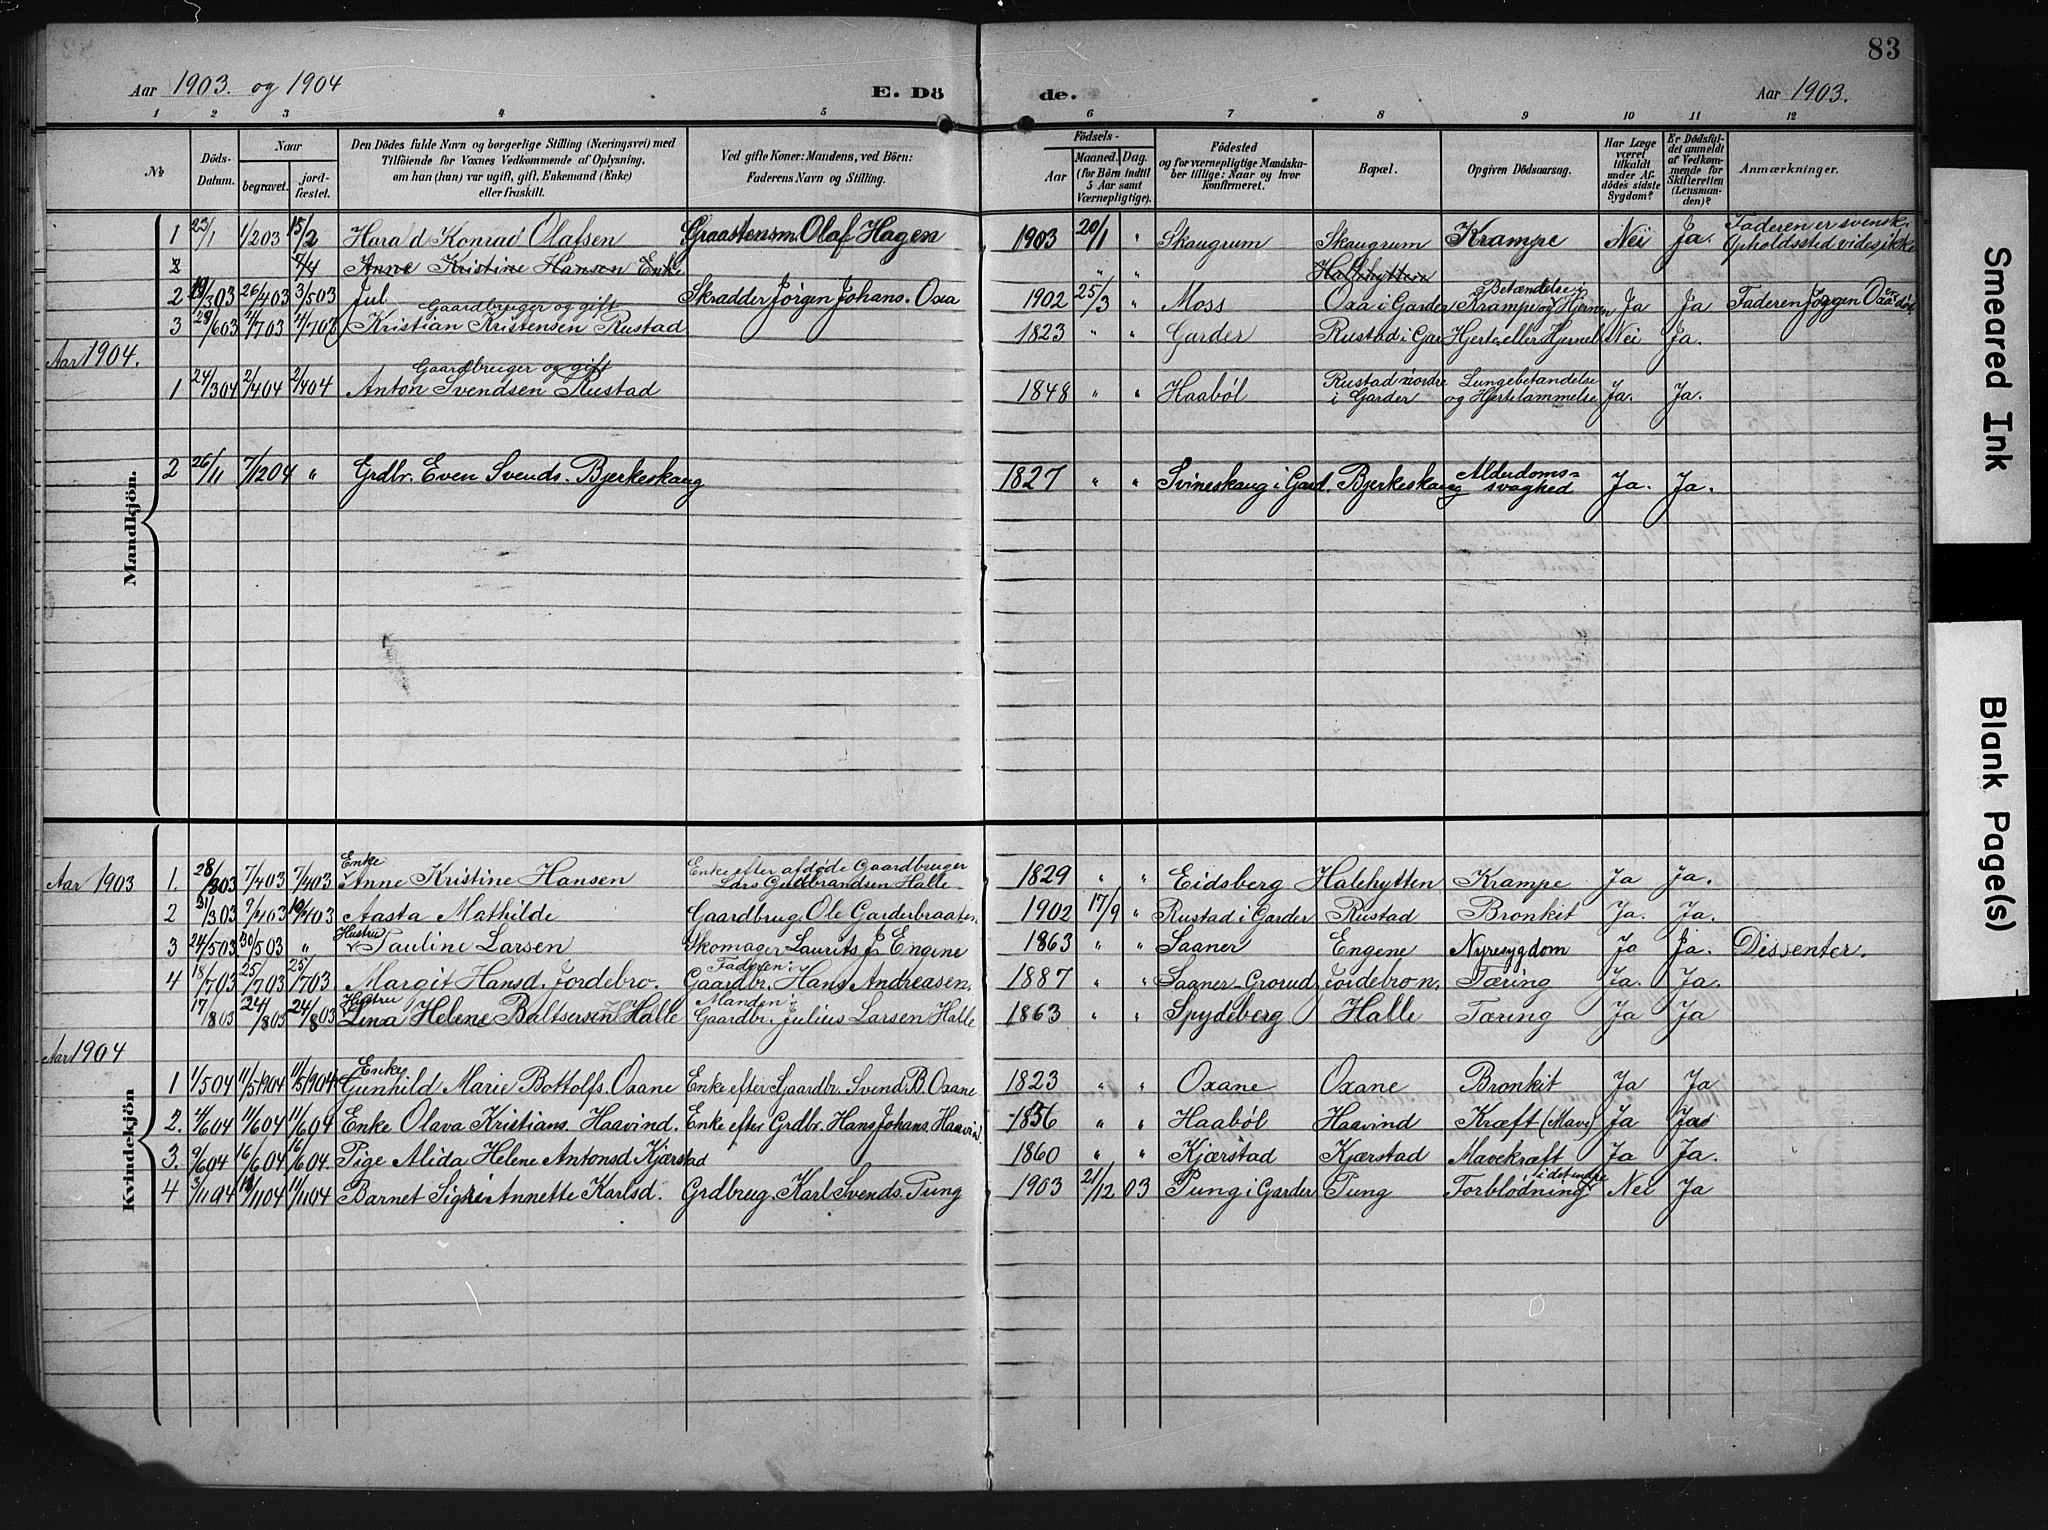 83
Aar 1903. og 1904 E. Dö de. Aar 1903.
1 2 3 4 5 6 7 8 9 10 11 12
No
Döds-Datum.
Naar
begravet.
jord-fæstet.
Den Dödes fulde Navn og borgerlige Stilling (Næringsvei) med
Tilföiende for Voxnes Vedkommende af Oplysning,
om han (hun) var ugift, gift, Enkemand (Enke)
eller fraskilt.
Ved gifte Koner: Mandens, ved Börn:
Faderens Navn og Stilling.
Födsels-
Aar
Maaned. Dag.
(for Börn indtil
5 Aar samt
Værnepligtige).
Födested
og for værnepligtige Mandska-
ber tillige: Naar og hvor
konfirmeret.
Bopæl.
Opgiven Dödsaarsag.
Har Læge
været
tilkaldt
under Af-
dödes sidste
Sygdom?
Er Dödsfal-
det anmeldt
af Vedkom-
mende for
Skifteretten
(Lensman-
den)?
Anmærkninger.
Mandkjön.
1 23/1 1/203 15/2 Hara d Konrad Olafsen Graastensm. Olaf Hagen 1903 20/1 " Skaugrum Skaugrum Krampe Nei Ja. Faderen er svensk. Opholdssted vides ikke
2 7/4 Anne Kristine Hansen Enke " " Halehytten
2 19/303 26/403 3/503 Jul Skrædder Jörgen Johans. Oxa 1902 25/3 " Moss Oxa i Garder Krampe og Betændelse i Hjernen Ja Ja Faderen Jörgen Oxa er död
Gaardbruger og gift
3 28/603 4/703 4/703 Kristian Kristensen Rustad 1823 " " Garder Rustad i Gar Hjerte eller Hjernel Nei Ja.
Aar 1904.
Gaardbruger og gift
1 24/304 2/404 2/404 Anton Svendsen Rustad 1848 " " Haaböl Rustad nordre i Garder Lungebetændelse og Hjertelammelse Ja. Ja.
2 26/11 7/1204 " Grdbr. Even Svends. Bjerkeskaug 1827 " " Svineskaug i Gard. Bjerkeskaug Alderdoms-svaghed Ja. Ja.
Kvindekjön
Aar 1903
1. 28/303 7/403 7/403 Enke Anne Kristine Hansen Enke efter afdöde Gaardbruger Lars Guldbrandsen Halle 1829 " " Eidsberg Halehytten Krampe Ja Ja.
2 31/303 9/403 19/403 Aasta Mathilde Gaardbrug. Ole Garderbraaten 1902 17/9 " Rustad i Garder Rustad Bronkit Ja. Ja.
3 24/503 30/503 " Hustru Pauline Larsen Skomager Laurits J. Engene 1863 " " Saaner Engene Nyresygdom Ja Ja. Dissenter.
4 18/703 25/703 25/703 Margit Hansd. Jordebro. Faderen: Gaardbr. Hans Andreasen. 1887 " " Saaner-Grorud Jordebro n. Tæring Ja. Ja.
17/803 24/803 24/803 Hustru Lina Helene Baltsersen Halle Manden: Gaardbr. Julius Larsen Halle 1863 " " Spydeberg Halle Tæring Ja Ja
Aar 1904
1 1/504 11/51904 11/51904 Enke Gunhild Marie Bottolfs. Oxane Enke efter Gaardbr. Svend B. Oxane 1823 " " Oxane Oxane Bronkit Ja Ja
2. 4/604 11/604 11/604 Enke Olava Kristians. Haavind. Enke efter Grdbr. Hans Johans. Haavind. 1836 " " Haaböl Haavind Kræft (Mave) Ja Ja
3. 9/604 16/604 16/604. Pige Alida Helene Antonsd Kjærstad 1860 " " Kjærstad Kjærstad Mavekræft Ja Ja.
4 3/1104 11/1104 11/1104 Barnet Sigri Annette Karlsd. Grdbrug. Karl Svends. Pung 1903 21/12 03 Pung i Garder Pung Forblödning i det indre Nei Ja
Smeared Ink
Blank Page(s)